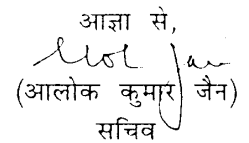 आज्ञा से,
(आलोक कुमार जैन)
सचिव